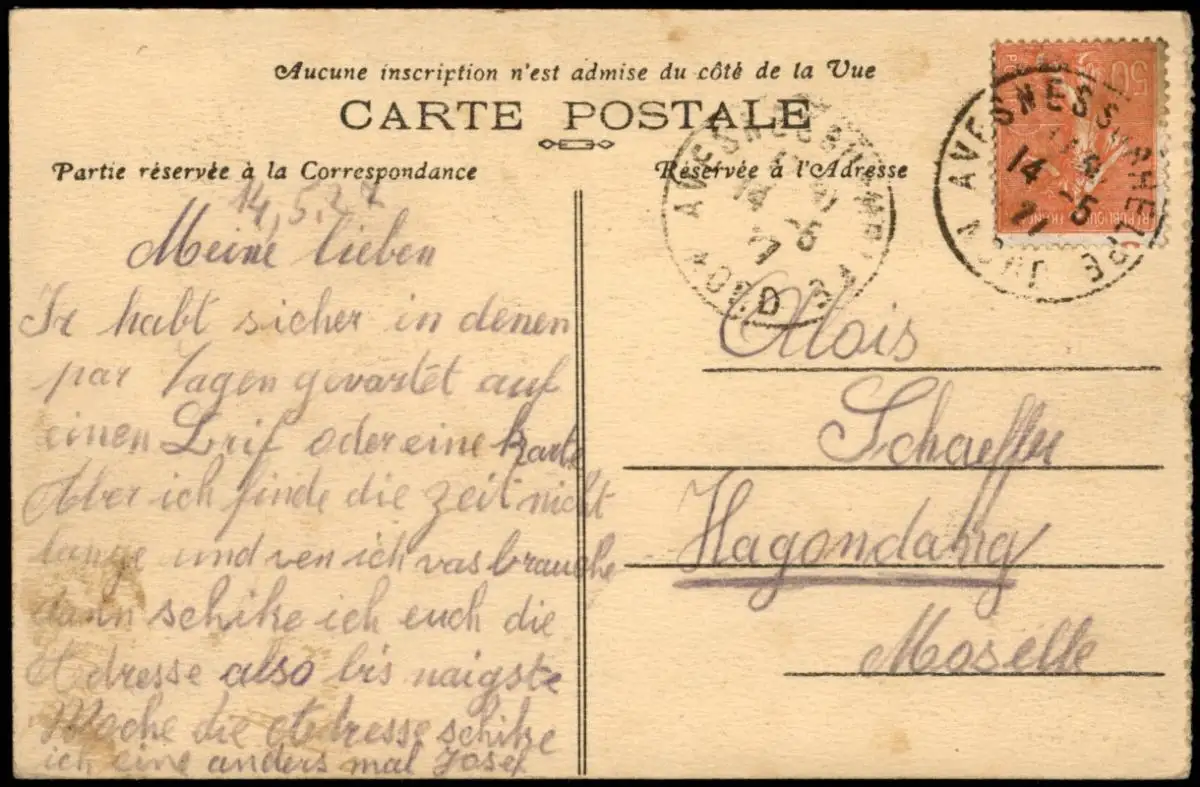 Aucune inscription n'est admise du côté de la Vue
CARTE POSTALE
Partie réservée à la Correspondance
Réservée à l'Adresse
14.5.27
Meine lieben
Ir habt sicher in denen
par Tagen gevartet auf
einen Brif oder eine karte
Aber ich finde die zeit nicht
lange und ven ich vas brauche
dann schike ich euch die
Adresse also bis naigste
Woche die Adresse schike
ich eine anders mal Josef
Alois
Schaeffer
Hagondang
Moselle
AVESNES
14 -5
27
NORD
AVESNES SUR HELPE
14 -5
NORD
50
RÉPUBLIQUE FRANÇAISE